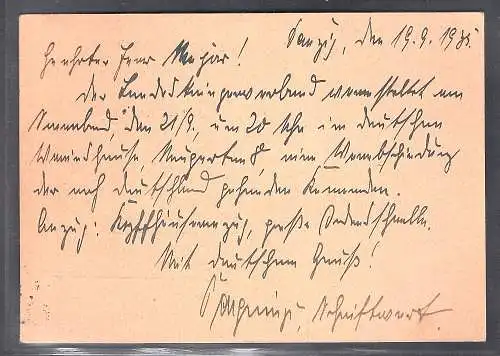 Danzig, den 19.9.1935.
Geehrter Herr Major!
Der Landeskriegerverband veranstaltet am
Sonnabend, den 21/9., um 20 Uhr im deutschen
eine Verabschiedung
der nach Deutschland gehenden Kameraden.
Anzug: Kyffhäuseranzug, große Ordensschnalle.
Mit deutschem Gruß!
Schriftwart.